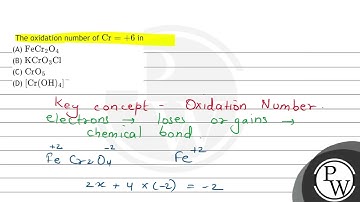 The oxidation number of Cr = +6 in
(A) FeCr₂O₄
(B) KCrO₃Cl
(C) CrO₅
(D) [Cr(OH)₄]⁻
Key concept - Oxidation Number.
electrons → loses or gains →
chemical bond.
+2 -2
Fe Cr₂O₄ Fe⁺²
2x + 4 × (-2) = -2
P
W